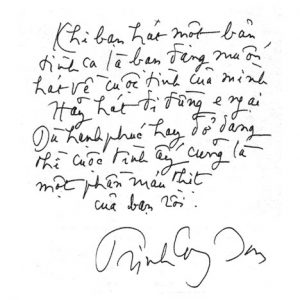 Khi bạn hát một bản
tình ca là bạn đang muốn
hát về cuộc tình của mình
Hãy hát đi đừng e ngại
Dù hạnh phúc hay dở dang
thì cuộc tình ấy cũng là
một phần máu thịt
của bạn rồi.
Trịnh Công Sơn